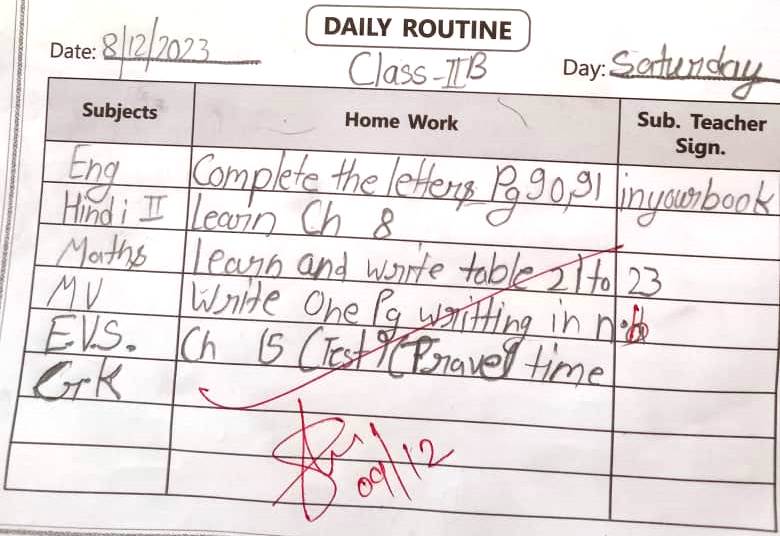 DAILY ROUTINE
Date: 8/12/2023 Class-IIB Day: Saturday
Subjects Home Work Sub. Teacher Sign.
Eng Complete the letters Pg 90,91 in your book
Hindi II learn Ch 8
Maths learn and write table 21 to 23
MV Write One Pg writting in n.b
E.V.S. Ch 15 (Test) time
G.K
09/12